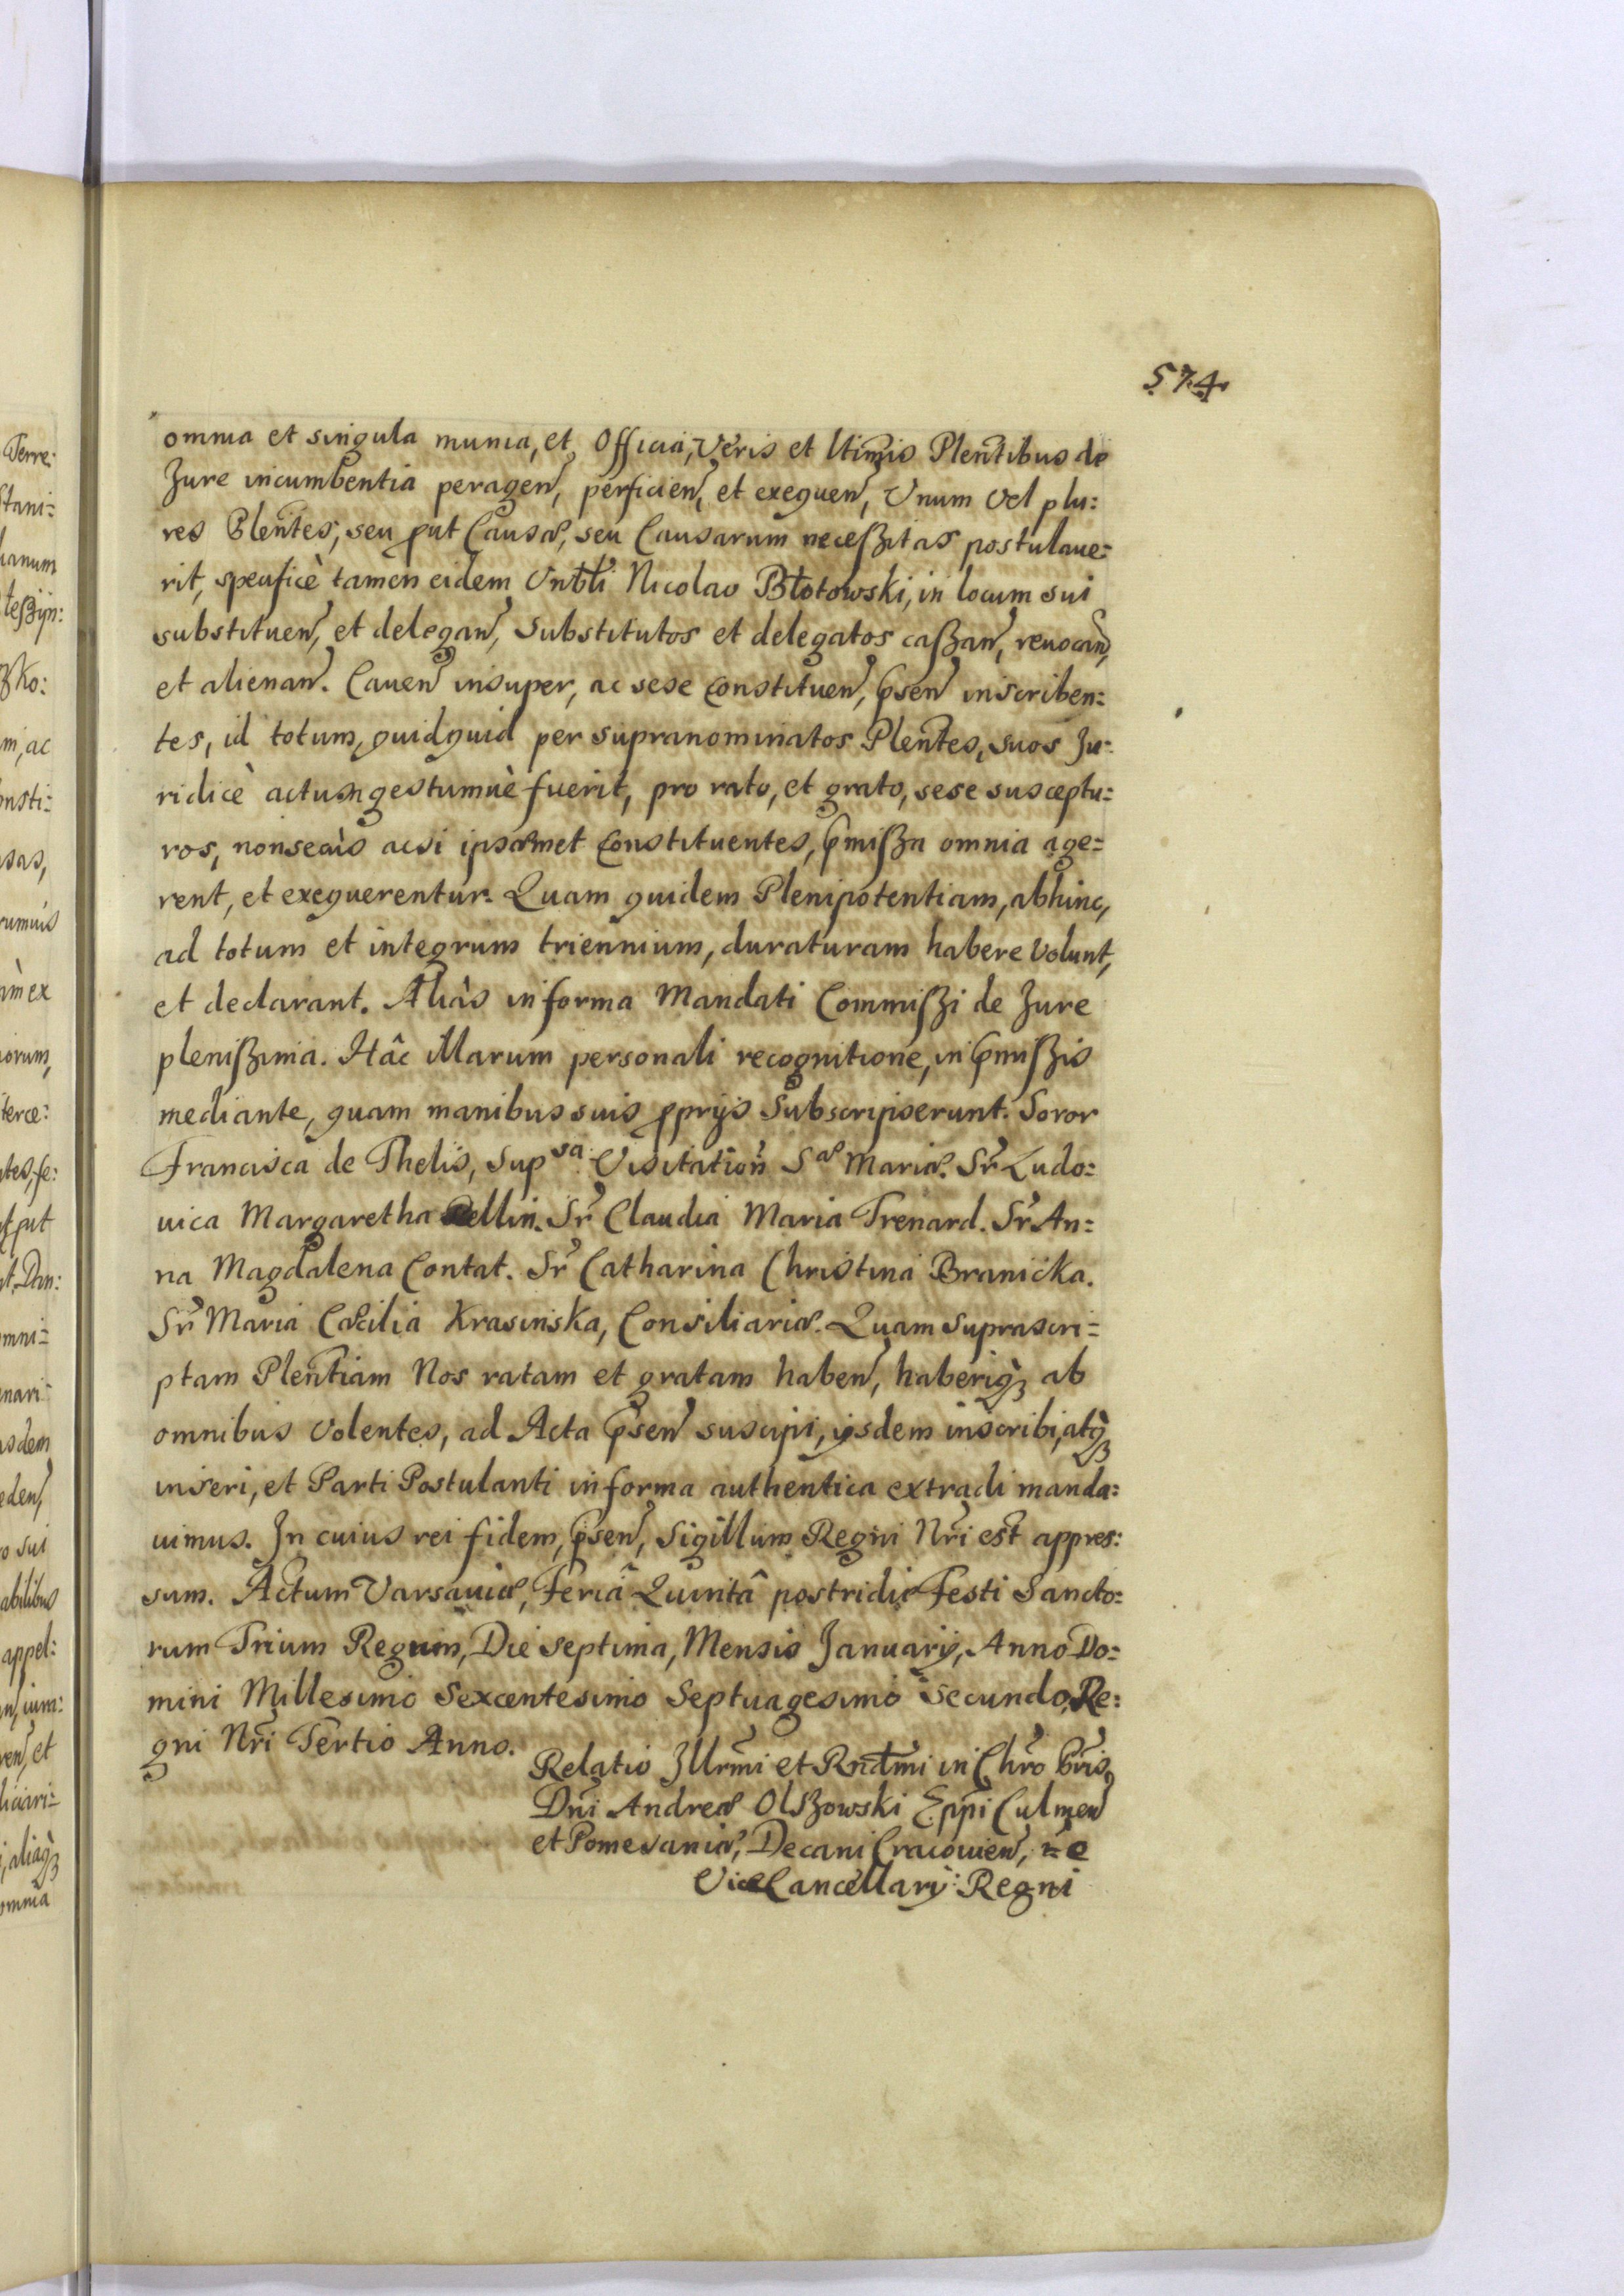 574
omnia et singula munia, et Officia, Veris et ltimis Plentibus de
Jure incumbentia peragen, perficien, et exequen, Unum vel plu:
res Plentes, seu put Causæ, seu Causarum neceßitas postulaue:
rit, specificè tamen eidem Vnbli Nicolao Błotowski, in locum sui
substituen, et delegan, Substitutos et delegatos caßan, reuocan,
et alienan. Cauen insuper, ac sese constituen, psen inscriben:
tes, id totum, quidquid per supranominatos Plentes, suos Ju:
ridicè actum gestumuè fuerit, pro rato, et grato, sese susceptu:
ros, nonsecùs acsi ipsæmet Constituentes, pmißa omnia age:
rent, et exequerentur. Quam quidem Plenipotentiam, abhinc,
ad totum et integrum triennium, duraturam habere Volunt,
et declarant. Aliàs in forma Mandati Commißi de Jure
plenißima. Hâc illarum personali recognitione, in pmißis
mediante, quam manibus suis pprijs Subscripserunt. Soror
Francisca de Thelis, Sup<sup>sa</sup>. Visitation S<sup>æ</sup> Mariæ. Sr Ludo:
uica Margaretha Rellin. Sr Claudia Maria Trenard. Sr An:
na Magdalena Contat. Sr Catharina Christina Branicka.
Sr Maria Cæcilia Krasinska, Consiliariæ. Quam suprascri:
ptam Plentiam Nos ratam et gratam haben, haberiq3 ab
omnibus volentes, ad Acta psen suscipi, ijsdem inscribi, atq3
inseri, et Parti Postulanti in forma authentica extradi manda:
uimus. In cuius rei fidem, psen, Sigillum Regni Nri est appres:
sum. Actum Varsauiæ, Feriâ Quintâ postridie Festi Sancto:
rum Trium Regum, Die septima, Mensis Januarij, Anno Do:
mini Millesimo Sexcentesimo Septuagesimo Secundo, Re:
gni Nri Tertio Anno.
Relatio Illrmi et Rndmi in Chro Pris,
Dni Andreæ Olszowski Eppi Culmen
et Pomesaniæ, Decani Cracouien,
ViceCancellarij Regni